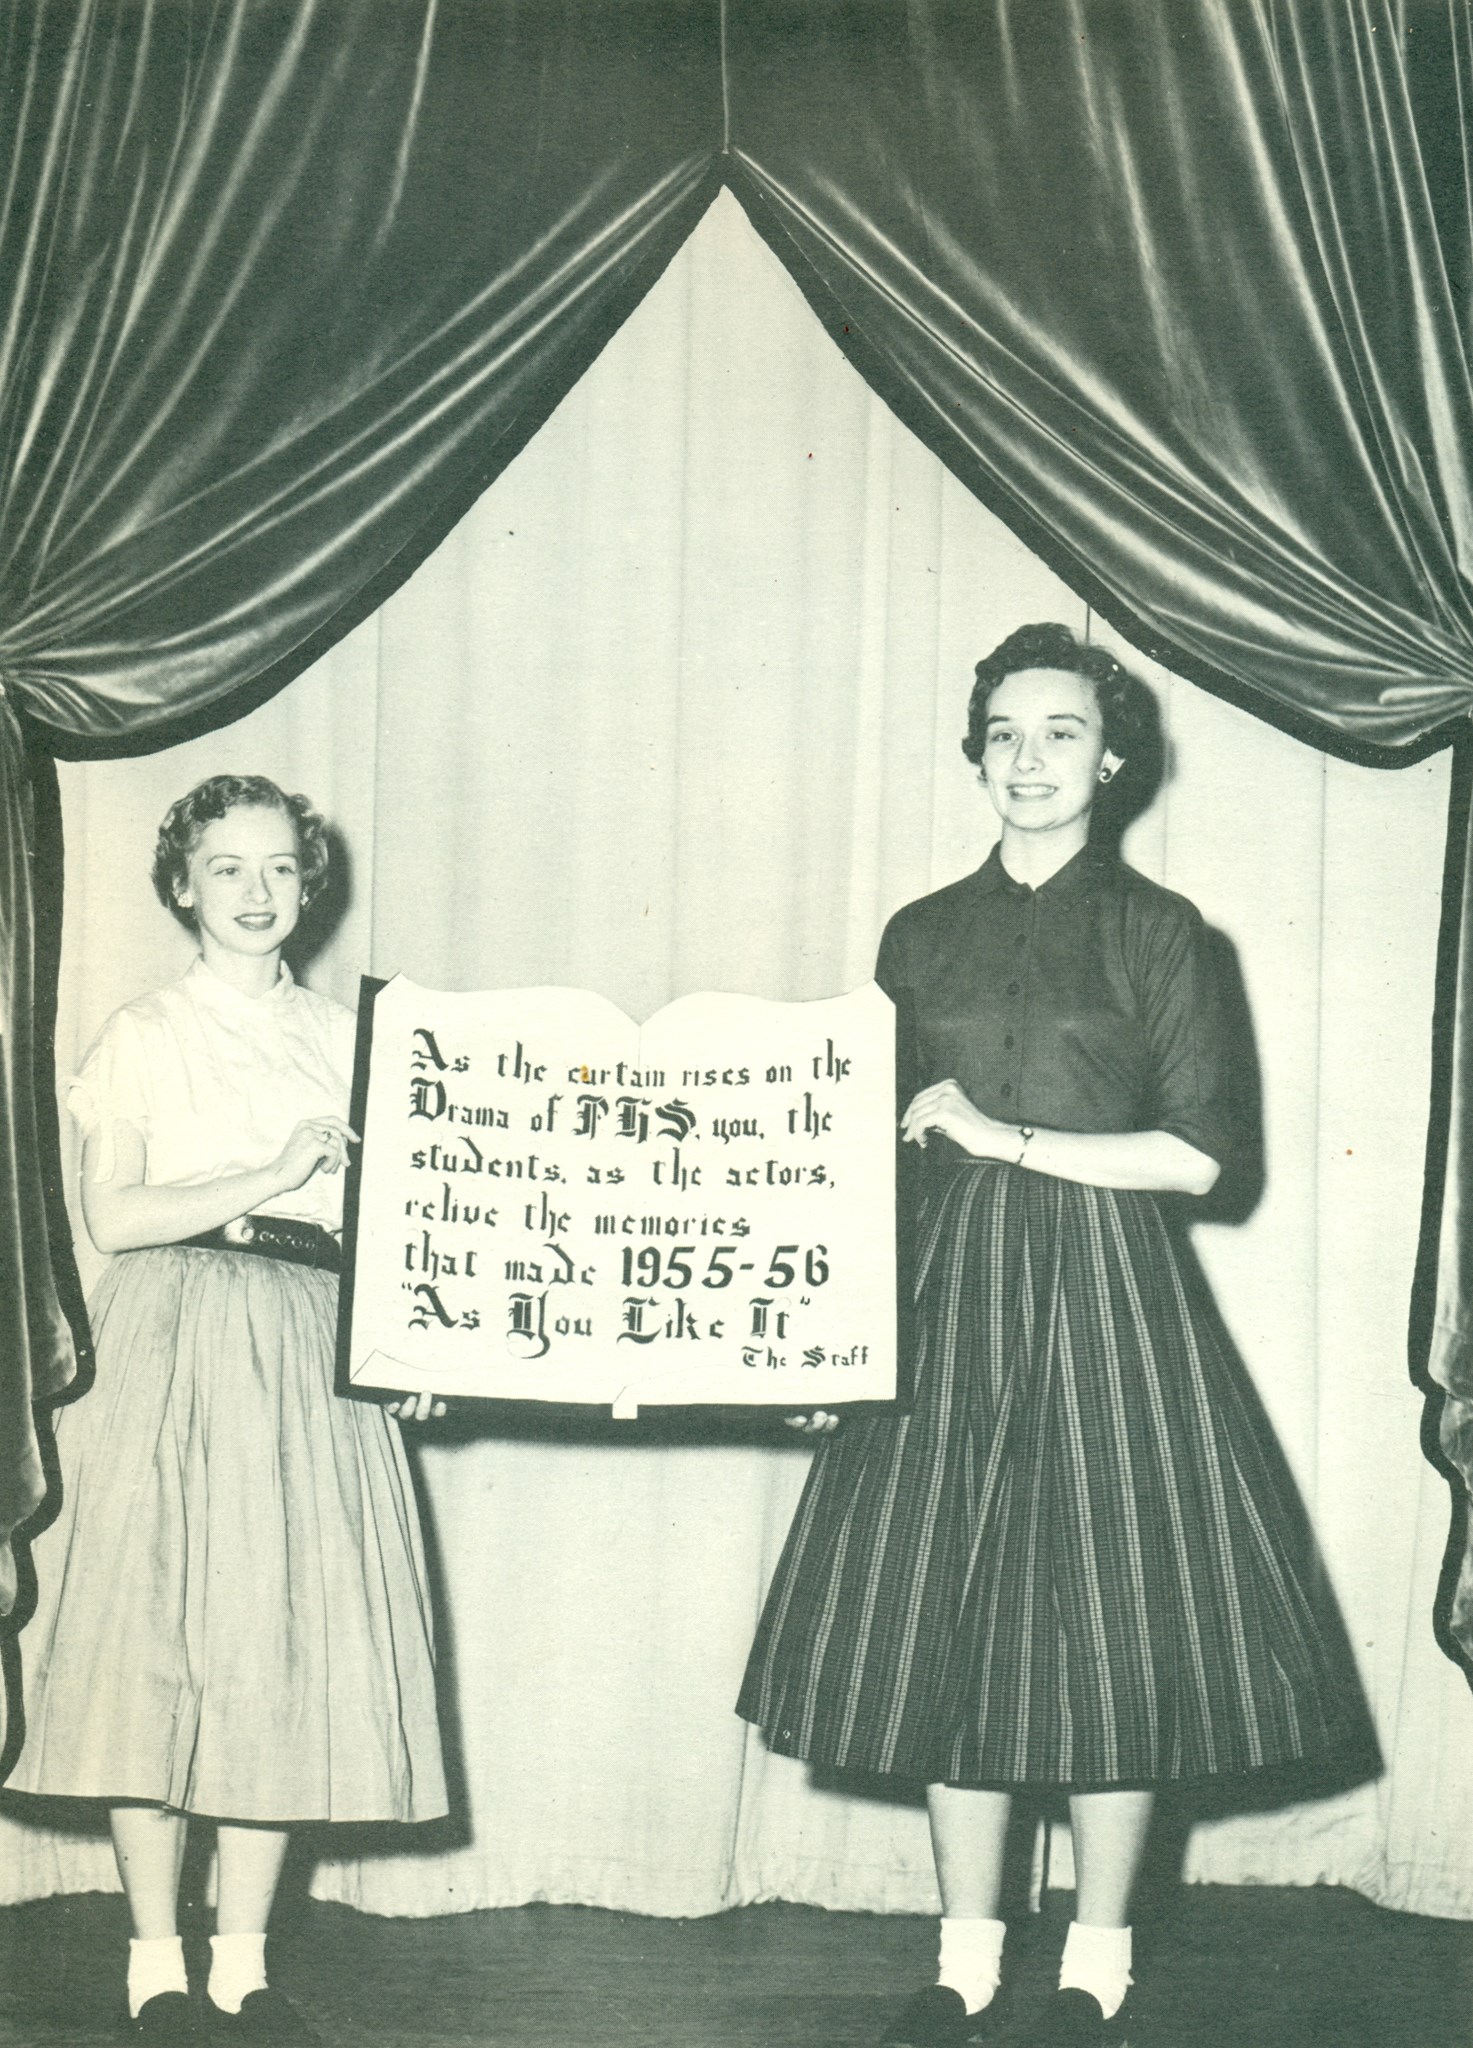 As the curtain rises on the
Drama of PHS, you, the
students, as the actors,
relive the memories
that made 1955-56
"As You Like It"
The Staff